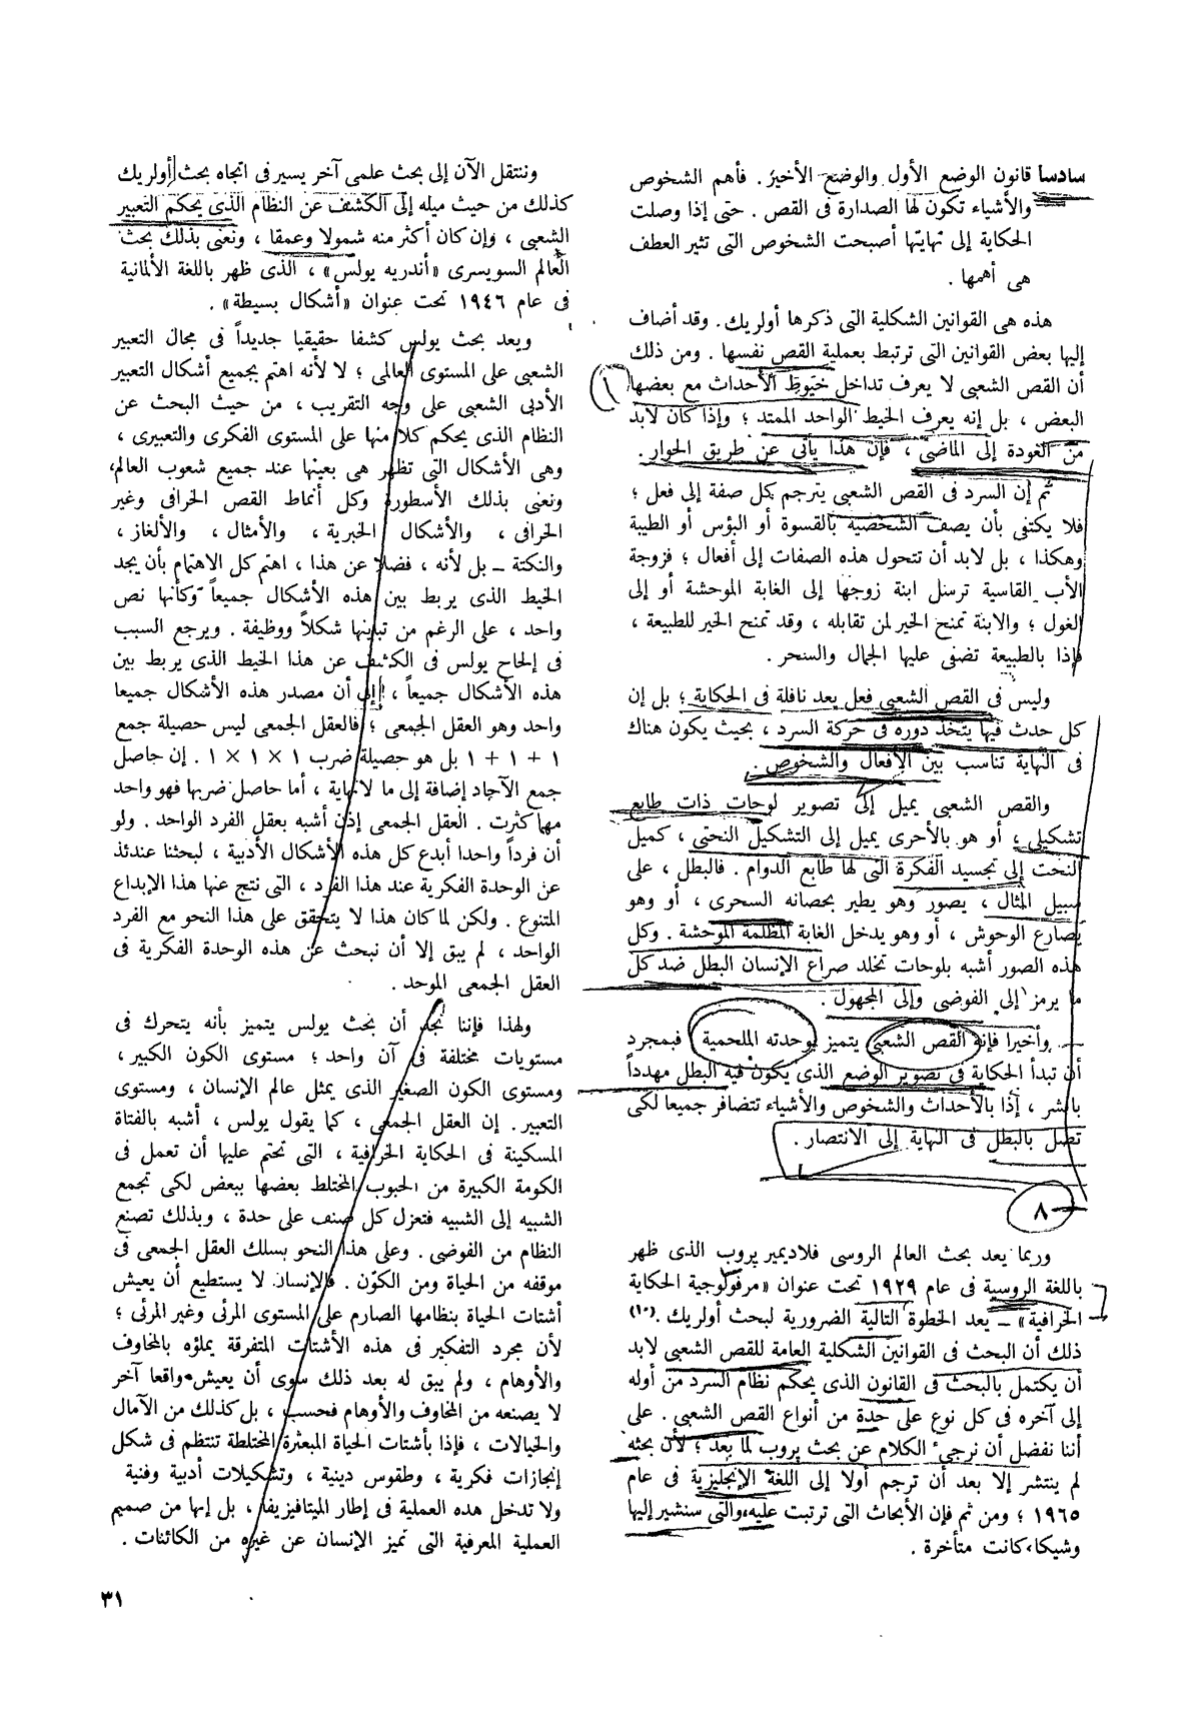 سادسا قانون الوضع الأول والوضع الأخير . فأهم الشخوص
والأشياء تكون لها الصدارة فى القص . حتى إذا وصلت
الحكاية إلى نهايتها أصبحت الشخوص التى تثير العطف
هى أهمها .
هذه هى القوانين الشكلية التى ذكرها أولريك. وقد أضاف
إليها بعض القوانين التى ترتبط بعملية القص نفسها . ومن ذلك
أن القص الشعبى لا يعرف تداخل خيوط الأحداث مع بعضها
١
البعض ، بل إنه يعرف الخيط الواحد الممتد ؛ وإذا كان لابد
من العودة إلى الماضى ، فإن هذا يأتى عن طريق الحوار .
ثم إن السرد فى القص الشعبى يترجم كل صفة إلى فعل ؛
فلا يكتفى بأن يصف الشخصية بالقسوة أو البؤس أو الطيبة
وهكذا ، بل لابد أن تتحول هذه الصفات إلى أفعال ؛ فزوجة
الأب القاسية ترسل ابنة زوجها إلى الغابة الموحشة أو إلى
الغول ؛ والابنة تمنح الخير لمن تقابله ، وقد تمنح الخير للطبيعة ،
فإذا بالطبيعة تضفى عليها الجمال والسحر .
وليس فى القص الشعبى فعل يعد نافلة فى الحكاية ؛ بل إن
كل حدث فيها يتخذ دوره فى حركة السرد ، بحيث يكون هناك
فى النهاية تناسب بين الأفعال والشخوص .
والقص الشعبى يميل إلى تصوير لوحات ذات طابع
تشكيلى ؛ أو هو بالأحرى يميل إلى التشكيل النحتى ، كميل
النحت إلى تجسيد الفكرة التى لها طابع الدوام . فالبطل ، على
سبيل المثال ، يصور وهو يطير بحصانه السحرى ، أو وهو
يصارع الوحوش ، أو وهو يدخل الغابة المظلمة الموحشة . وكل
هذه الصور أشبه بلوحات تخلد صراع الإنسان البطل ضد كل
ما يرمز إلى الفوضى وإلى المجهول .
وأخيرا فإن القص الشعبى يتميز بوحدته الملحمية فبمجرد
أن تبدأ الحكاية فى تصوير الوضع الذى يكون فيه البطل مهدداً
بالشر ، إذا بالأحداث والشخوص والأشياء تتضافر جميعا لكى
تصل بالبطل فى النهاية إلى الانتصار .
٨
وربما يعد بحث العالم الروسى فلاديمير پروب الذى ظهر
باللغة الروسية فى عام ١٩٢٩ تحت عنوان «مرفولوجية الحكاية
الخرافية» ــ يعد الخطوة التالية الضرورية لبحث أولريك .(١٠)
ذلك أن البحث فى القوانين الشكلية العامة للقص الشعبى لابد
أن يكتمل بالبحث فى القانون الذى يحكم نظام السرد من أوله
إلى آخره فى كل نوع على حدة من أنواع القص الشعبى . على
أننا نفضل أن نرجىء الكلام عن بحث پروب لما بعد ؛ لأن بحثه
لم ينتشر إلا بعد أن ترجم أولا إلى اللغة الإنجليزية فى عام
١٩٦٥ ؛ ومن ثم فإن الأبحاث التى ترتبت عليه، والتى سنشير إليها
وشيكا، كانت متأخرة .
وننتقل الآن إلى بحث علمى آخر يسير فى اتجاه بحث أولريك
كذلك من حيث ميله إلى الكشف عن النظام الذى يحكم التعبير
الشعبى ، وإن كان أكثر منه شمولا وعمقا ، ونعنى بذلك بحث
العالم السويسرى «أندريه يولس» ، الذى ظهر باللغة الألمانية
فى عام ١٩٤٦ تحت عنوان «أشكال بسيطة» .
ويعد بحث يولس كشفا حقيقيا جديداً فى مجال التعبير
الشعبى على المستوى العالمى ؛ لا لأنه اهتم بجميع أشكال التعبير
الأدبى الشعبى على وجه التقريب ، من حيث البحث عن
النظام الذى يحكم كلا منها على المستوى الفكرى والتعبيرى ،
وهى الأشكال التى تظهر هى بعينها عند جميع شعوب العالم،
ونعنى بذلك الأسطورة وكل أنماط القص الخرافى وغير
الخرافى ، والأشكال الخبرية ، والأمثال ، والألغاز ،
والنكتة ــ بل لأنه ، فضلا عن هذا ، اهتم كل الاهتمام بأن يجد
الخيط الذى يربط بين هذه الأشكال جميعاً وكأنها نص
واحد ، على الرغم من تباينها شكلاً ووظيفة . ويرجع السبب
فى إلحاح يولس فى الكشف عن هذا الخيط الذى يربط بين
هذه الأشكال جميعاً ، إلى أن مصدر هذه الأشكال جميعا
واحد وهو العقل الجمعى ؛ فالعقل الجمعى ليس حصيلة جمع
١ + ١ + ١ بل هو حصيلة ضرب ١ × ١ × ١ . إن حاصل
جمع الآحاد إضافة إلى ما لا نهاية ، أما حاصل ضربها فهو واحد
مهما كثرت . العقل الجمعى إذن أشبه بعقل الفرد الواحد . ولو
أن فرداً واحدا أبدع كل هذه الأشكال الأدبية ، لبحثنا عندئذ
عن الوحدة الفكرية عند هذا الفرد ، التى نتج عنها هذا الإبداع
المتنوع . ولكن لما كان هذا لا يتحقق على هذا النحو مع الفرد
الواحد ، لم يبق إلا أن نبحث عن هذه الوحدة الفكرية فى
العقل الجمعى الموحد .
ولهذا فإننا نجد أن بحث يولس يتميز بأنه يتحرك فى
مستويات مختلفة فى آن واحد ؛ مستوى الكون الكبير ،
ومستوى الكون الصغير الذى يمثل عالم الإنسان ، ومستوى
التعبير . إن العقل الجمعى ، كما يقول يولس ، أشبه بالفتاة
المسكينة فى الحكاية الخرافية ، التى تحتم عليها أن تعمل فى
الكومة الكبيرة من الحبوب المختلط بعضها ببعض لكى تجمع
الشبيه إلى الشبيه فتعزل كل صنف على حدة ، وبذلك تصنع
النظام من الفوضى . وعلى هذا النحو يسلك العقل الجمعى فى
موقفه من الحياة ومن الكون . فالإنسان لا يستطيع أن يعيش
أشتات الحياة بنظامها الصارم على المستوى المرئى وغير المرئى ؛
لأن مجرد التفكير فى هذه الأشتات المتفرقة يملؤه بالمخاوف
والأوهام ، ولم يبق له بعد ذلك سوى أن يعيش واقعا آخر
لا يصنعه من المخاوف والأوهام فحسب ، بل كذلك من الآمال
والخيالات ، فإذا بأشتات الحياة المبعثرة المختلطة تنتظم فى شكل
إنجازات فكرية ، وطقوس دينية ، وتشكيلات أدبية وفنية
ولا تدخل هذه العملية فى إطار الميتافيزيقا ، بل إنها من صميم
العملية المعرفية التى تميز الإنسان عن غيره من الكائنات .
٣١